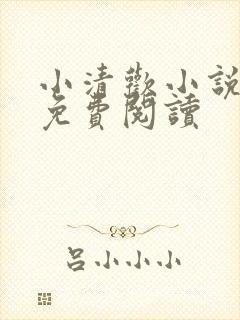 小清歡小說
免費閱讀
呂小小小